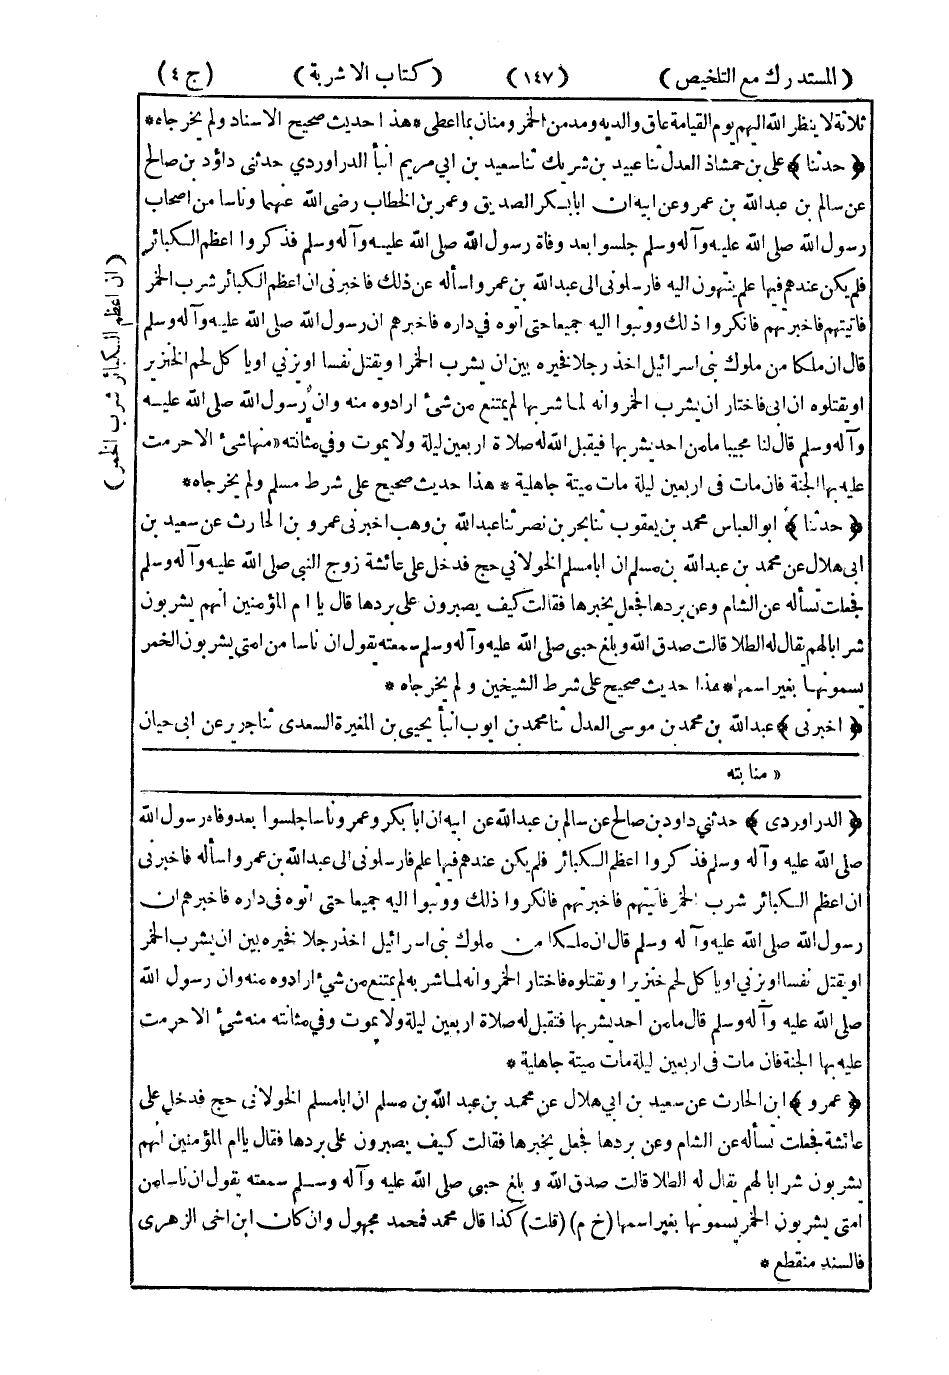 (المستدرك مع التلخيص) (١٤٧) (كتاب الاشربة) (ج ٤)
ثلاثة لا ينظر الله اليهم يوم القيامة عاق والديه ومدمن الخمر ومنان بما اعطى * هذا حديث صحيح الاسناد ولم يخرجاه *
﴿ حدثنا ﴾ على بن حمشاذ العدل ثنا عبيد بن شريك ثنا سعيد بن ابى مريم انبأ الدراوردي حدثنى داؤد بن صالح
عن سالم بن عبدالله بن عمرو عن ابيه ان ابابكر الصديق وعمر بن الخطاب رضى الله عنهما وناسا من اصحاب
رسول الله صلى الله عليه وآله وسلم جلسوا بعد وفاة رسول الله صلى الله عليه وآله وسلم فذكروا اعظم الكبائر
فلم يكن عندهم فيها علم ينتهون اليه فارسلونى الى عبدالله بن عمرو اسأله عن ذلك فاخبرنى ان اعظم الكبائر شرب الخمر
فاتيتهم فاخبرتهم فانكروا ذلك ووثبوا اليه جميعا حتى اتوه في داره فاخبرهم ان رسول الله صلى الله عليه وآله وسلم
قال ان ملكا من ملوك بنى اسرائيل اخذ رجلا فخيره بين ان يشرب الخمر او يقتل نفسا او يزني او ياكل لحم الخنزير
او يقتلوه ان ابى فاختار ان يشرب الخمر وانه لما شربها لم يمتنع من شئ ارادوه منه وان رسول الله صلى الله عليه
وآله وسلم قال لنا مجيبا ما من احد يشربها فيقبل الله له صلاة اربعين ليلة ولا يموت وفي مثانته «منها شئ الا حرمت
عليه بها الجنة فان مات فى اربعين ليلة مات ميتة جاهلية * هذا حديث صحيح على شرط مسلم ولم يخرجاه *
﴿ حدثنا ﴾ ابو العباس محمد بن يعقوب ثنا بحر بن نصر ثنا عبدالله بن وهب اخبرنى عمرو بن الحارث عن سعيد بن
ابى هلال عن محمد بن عبدالله بن مسلم ان ابا مسلم الخولاني حج فدخل على عائشة زوج النبي صلى الله عليه وآله وسلم
فجعلت تسأله عن الشام وعن بردها فجعل يخبرها فقالت كيف يصبرون على بردها قال يا ام المؤمنين انهم يشربون
شرابا لهم يقال له الطلا قالت صدق الله وبلغ حبى صلى الله عليه وآله وسلم سمعته يقول ان ناسا من امتى يشربون الخمر
يسمونها بغير اسمها * هذا حديث صحيح على شرط الشيخين ولم يخرجاه *
﴿ اخبرنى ﴾ عبدالله بن محمد بن موسى العدل ثنا محمد بن ايوب انبأ يحيى بن المغيرة السعدى ثنا جرير عن ابى حيان
« مثابته
﴿ الدراوردى ﴾ حدثنى داود بن صالح عن سالم بن عبدالله عن ابيه ان ابا بكر وعمر وناسا جلسوا بعد وفاء رسول الله
صلى الله عليه وآله وسلم فذكروا اعظم الكبائر فلم يكن عندهم فيها علم فارسلونى الى عبدالله بن عمرو اسأله فاخبرنى
ان اعظم الكبائر شرب الخمر فاتيتهم فاخبرتهم فانكروا ذلك ووثبوا اليه جميعا حتى اتوه فى داره فاخبرهم ان
رسول الله صلى الله عليه وآله وسلم قال ان ملكا من ملوك بنى اسرائيل اخذ رجلا فخيره بين ان يشرب الخمر
او يقتل نفسا او يزني او ياكل لحم خنزير او يقتلوه فاختار الخمر وانه لما شربه لم يمتنع من شئ ارادوه منه وان رسول الله
صلى الله عليه وآله وسلم قال ما من احد يشربها فتقبل له صلاة اربعين ليلة ولا يموت وفي مثانته منه شئ الا حرمت
عليه بها الجنة فان مات فى اربعين ليلة مات ميتة جاهلية *
﴿ عمرو ﴾ ابن الحارث عن سعيد بن ابى هلال عن محمد بن عبد الله بن مسلم ان ابا مسلم الخولانى حج فدخل على
عائشة فجعلت تسأله عن الشام وعن بردها فجعل يخبرها فقالت كيف يصبرون على بردها فقال يا ام المؤمنين انهم
يشربون شرابا لهم يقال له الطلا قالت صدق الله وبلغ حبى صلى الله عليه وآله وسلم سمعته يقول ان ناسا من
امتى يشربون الخمر يسمونها بغير اسمها (خ م) (قلت) كذا قال محمد فمحمد مجهول وان كان ابن اخى الزهرى
فالسند منقطع *
(ان اعظم الكبائر شرب الخمر)